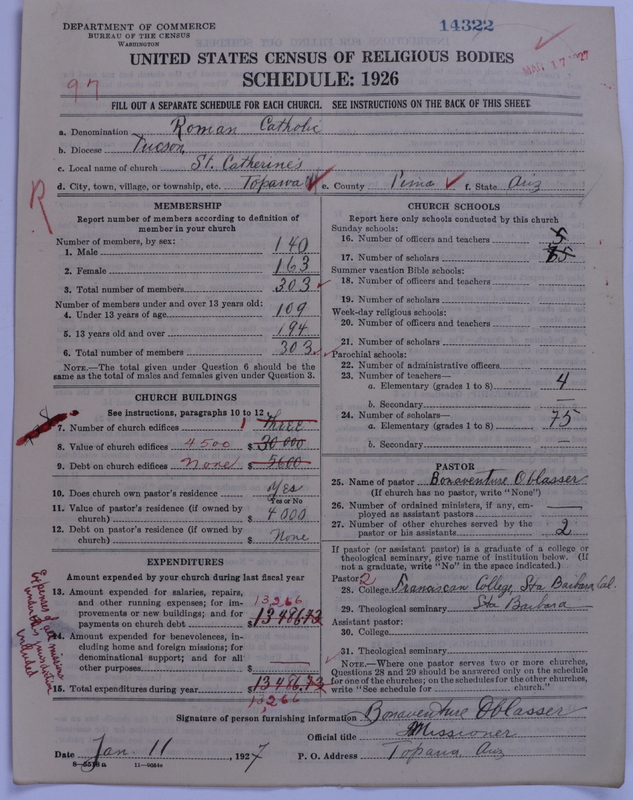 DEPARTMENT OF COMMERCE
BUREAU OF THE CENSUS
WASHINGTON
14322
MAR 17 1927
UNITED STATES CENSUS OF RELIGIOUS BODIES
SCHEDULE: 1926
97
FILL OUT A SEPARATE SCHEDULE FOR EACH CHURCH. SEE INSTRUCTIONS ON THE BACK OF THIS SHEET.
a. Denomination Roman Catholic
b. Diocese Tucson
c. Local name of church St. Catherine's
d. City, town, village, or township, etc. Topawa e. County Pima f. State Ariz
R
MEMBERSHIP
Report number of members according to definition of
member in your church
Number of members, by sex:
1. Male 140
2. Female 163
3. Total number of members 303
Number of members under and over 13 years old:
4. Under 13 years of age 109
5. 13 years old and over 194
6. Total number of members 303
NOTE.—The total given under Question 6 should be the
same as the total of males and females given under Question 3.
CHURCH BUILDINGS
See instructions, paragraphs 10 to 12
7. Number of church edifices 1 Three
8. Value of church edifices 4500 $ 30 000
9. Debt on church edifices none $ 5600
10. Does church own pastor's residence Yes
Yes or No
11. Value of pastor's residence (if owned by
church) $ 4000
12. Debt on pastor's residence (if owned by
church) $ None
EXPENDITURES
Amount expended by your church during last fiscal year
13. Amount expended for salaries, repairs,
and other running expenses; for im-
provements or new buildings; and for
payments on church debt $ 13486.73
13,266
14. Amount expended for benevolences, in-
cluding home and foreign missions; for
denominational support; and for all
other purposes
15. Total expenditures during year $ 13486.73
13,266
Expenses of all missions
under this jurisdiction
included
CHURCH SCHOOLS
Report here only schools conducted by this church
Sunday schools:
16. Number of officers and teachers 5
17. Number of scholars
Summer vacation Bible schools:
18. Number of officers and teachers
19. Number of scholars
Week-day religious schools:
20. Number of officers and teachers
21. Number of scholars
Parochial schools:
22. Number of administrative officers
23. Number of teachers—
a. Elementary (grades 1 to 8) 4
b. Secondary —
24. Number of scholars—
a. Elementary (grades 1 to 8) 75
b. Secondary —
PASTOR
25. Name of pastor Bonaventure Oblasser
(If church has no pastor, write "None")
26. Number of ordained ministers, if any, em-
ployed as assistant pastors —
27. Number of other churches served by the
pastor or his assistants 2
If pastor (or assistant pastor) is a graduate of a college or
theological seminary, give name of institution below. (If
not a graduate, write "No" in the space indicated.)
Pastor: 2
28. College Franciscan College, Sta Barbara Cal.
29. Theological seminary Sta Barbara
Assistant pastor:
30. College
31. Theological seminary
NOTE.—Where one pastor serves two or more churches,
Questions 28 and 29 should be answered only on the schedule
for one of the churches; on the schedules for the other churches,
write "See schedule for church."
Signature of person furnishing information Bonaventure Oblasser
Official title Missioner
Date Jan. 11 1927 P. O. Address Topawa Ariz
8—5518a 11—9864a